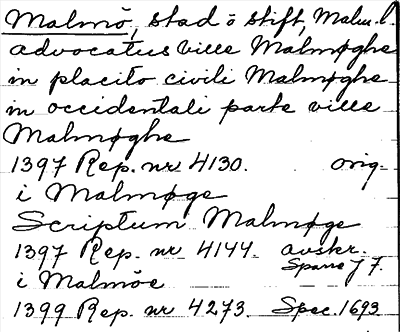 Malmö, stad o stift, Malm. l.
advocatus ville Malmøghe
in placito civili Malmøghe
in occidentali parte ville
Malmøghe
1397 Rep. nr 4130. orig.
i Malmøge
Scriptum Malmøge
1397 Rep. nr 4144. avskr.
Sparre 7 F.
i Malmöe
1399 Rep. nr 4273. Spec. 1693